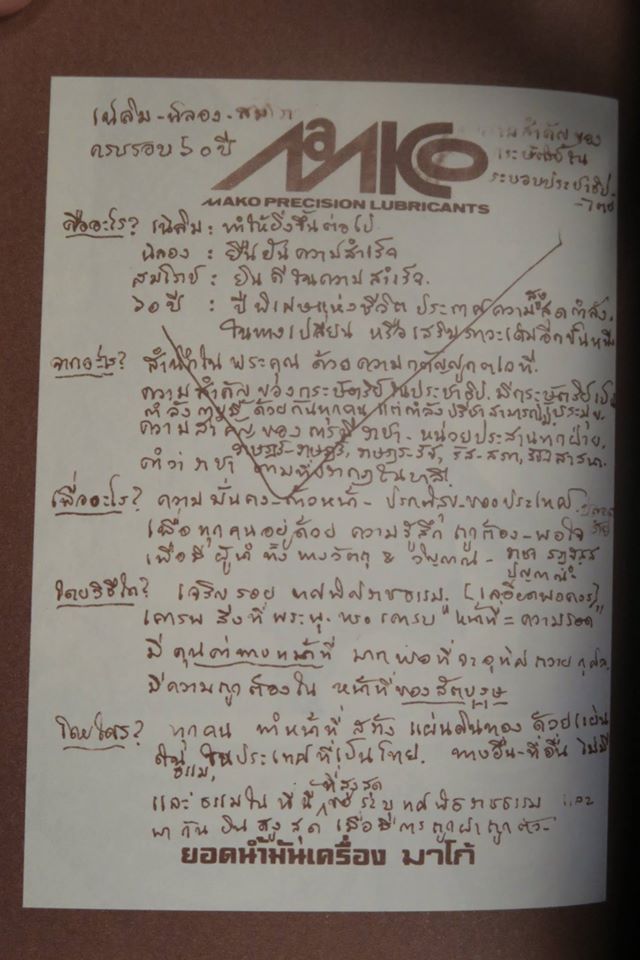 เฉลิม-ฉลอง-สมโภช
ครบรอบ ๖๐ ปี
ความสำคัญของ
กระษัตริย์ใน
ระบอบประชาธิป-
ไตย
MaKCo
MAKO PRECISION LUBRICANTS
คืออะไร? เฉลิม : ทำให้ยิ่งขึ้นต่อไป
ฉลอง : ยืนยันความสำเร็จ
สมโภช : ยินดีในความสำเร็จ.
๖๐ ปี : ปีพิเศษแห่งชีวิต ประกาศความสูงสุดกำลัง.
ในทางเปลี่ยน หรือเสริมภาวะเดิมอีกขั้นหนึ่ง
จากอะไร? สำนึกในพระคุณ ด้วยความกตัญญูกตเวที.
ความสำคัญของกระษัตริย์ในประชาธิป. มีกระษัตริย์เป็น
กำลัง ด้วยกันทุกคน แต่กำลัง
ความสำคัญของการมีราชา - หน่วยประสานทุกฝ่าย.
คำว่า ราชา ตามที่ปรากฏในบาลี.
เพื่ออะไร? ความมั่นคง-ก้าวหน้า-ปรกติสุข-ของประเทศ.
เพื่อทุกคนอยู่ด้วย ความรู้สึก ถูกต้อง-พอใจ
เพื่อมีผู้นำ ทั้งทางวัตถุ & วิญญาณ -
โดยวิธีใด? เจริญรอย ทศพิธราชธรรม. [ละเอียดพอควร]
เคารพ สิ่งที่พระพุ. ทรงเคารพ "หน้าที่ = ความรอด"
มีคุนค่าทางหน้าที่ มากพอที่จะอุทิศถวายกุศล.
มีความถูกต้องใน หน้าที่ของสัตบุรุษ
โดยใคร? ทุกคน ทำหน้าที่ สร้างแผ่นดินทอง ด้วยแผ่น
ดินธรรม, ในประเทศที่เป็นไทย. ทางอื่น-ที่อื่น ไม่มี
และธรรมในที่นี้ ที่สูงสุด ระบุทศพิธราชธรรม และ
พากันยินสูงสุด เมื่อมีการถูกฝาถูกตัว-
ยอดน้ำมันเครื่อง มาโก้